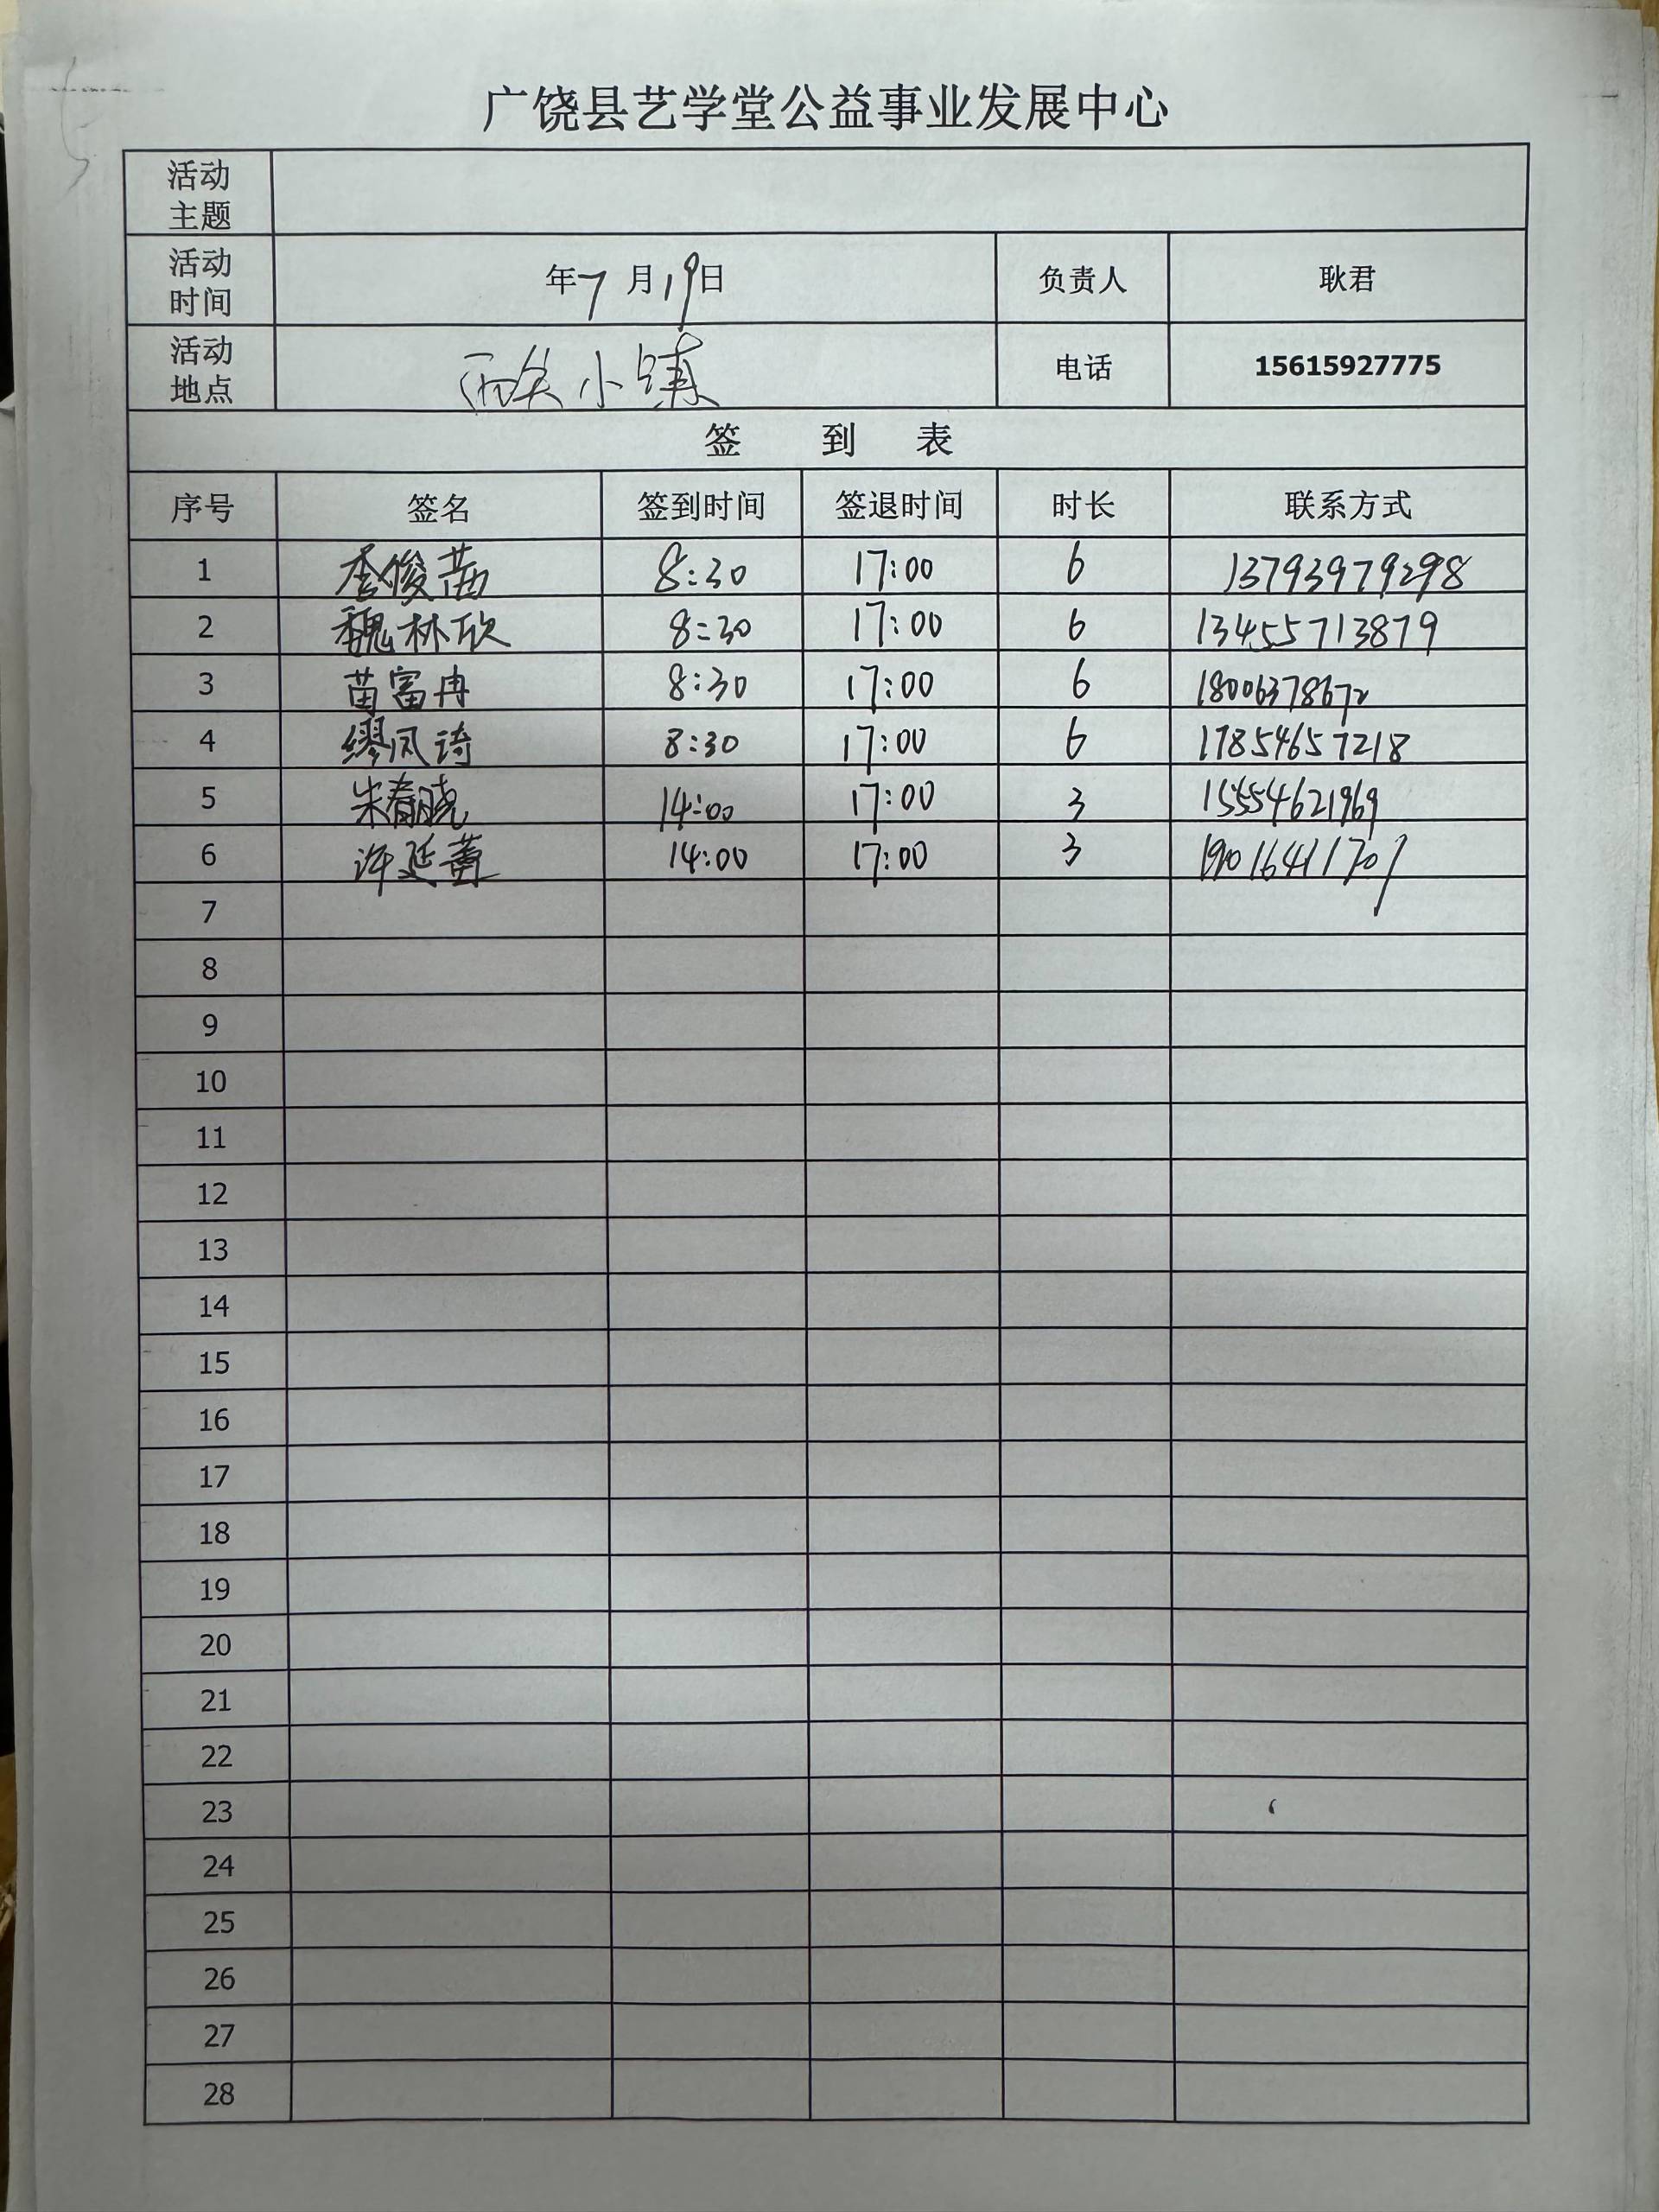 广饶县艺学堂公益事业发展中心
活动主题
活动时间 年7月19日 负责人 耿君
活动地点 西关小镇 电话 15615927775
签 到 表
序号 签名 签到时间 签退时间 时长 联系方式
1 李俊茜 8:30 17:00 6 13793979298
2 魏林欣 8:30 17:00 6 13455713879
3 苗富冉 8:30 17:00 6 18006378672
4 缪凤琦 8:30 17:00 6 17854657218
5 朱春晓 14:00 17:00 3 15554621969
6 许延 14:00 17:00 3
7
8
9
10
11
12
13
14
15
16
17
18
19
20
21
22
23
24
25
26
27
28